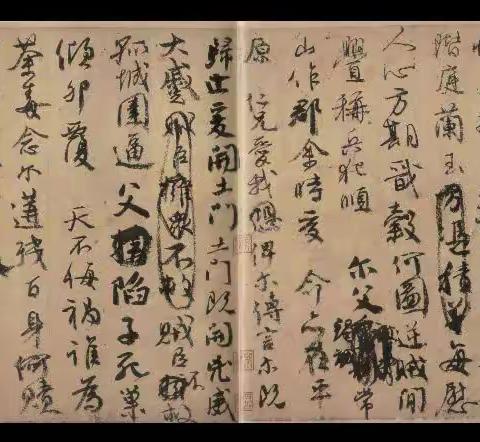 階庭蘭玉方憑積善每慰
人心方期戩穀何圖逆賊間
釁稱兵犯順尔父常
山作郡余時受命亦在平
原仁兄愛我俾尔傳言尔既
歸止爰開土門土門既開兇威
大蹙賊臣擁衆不救賊臣不救
孤城圍逼父陷子死巢
傾卵覆天不悔禍誰為
荼毒念尔遘殘百身何贖